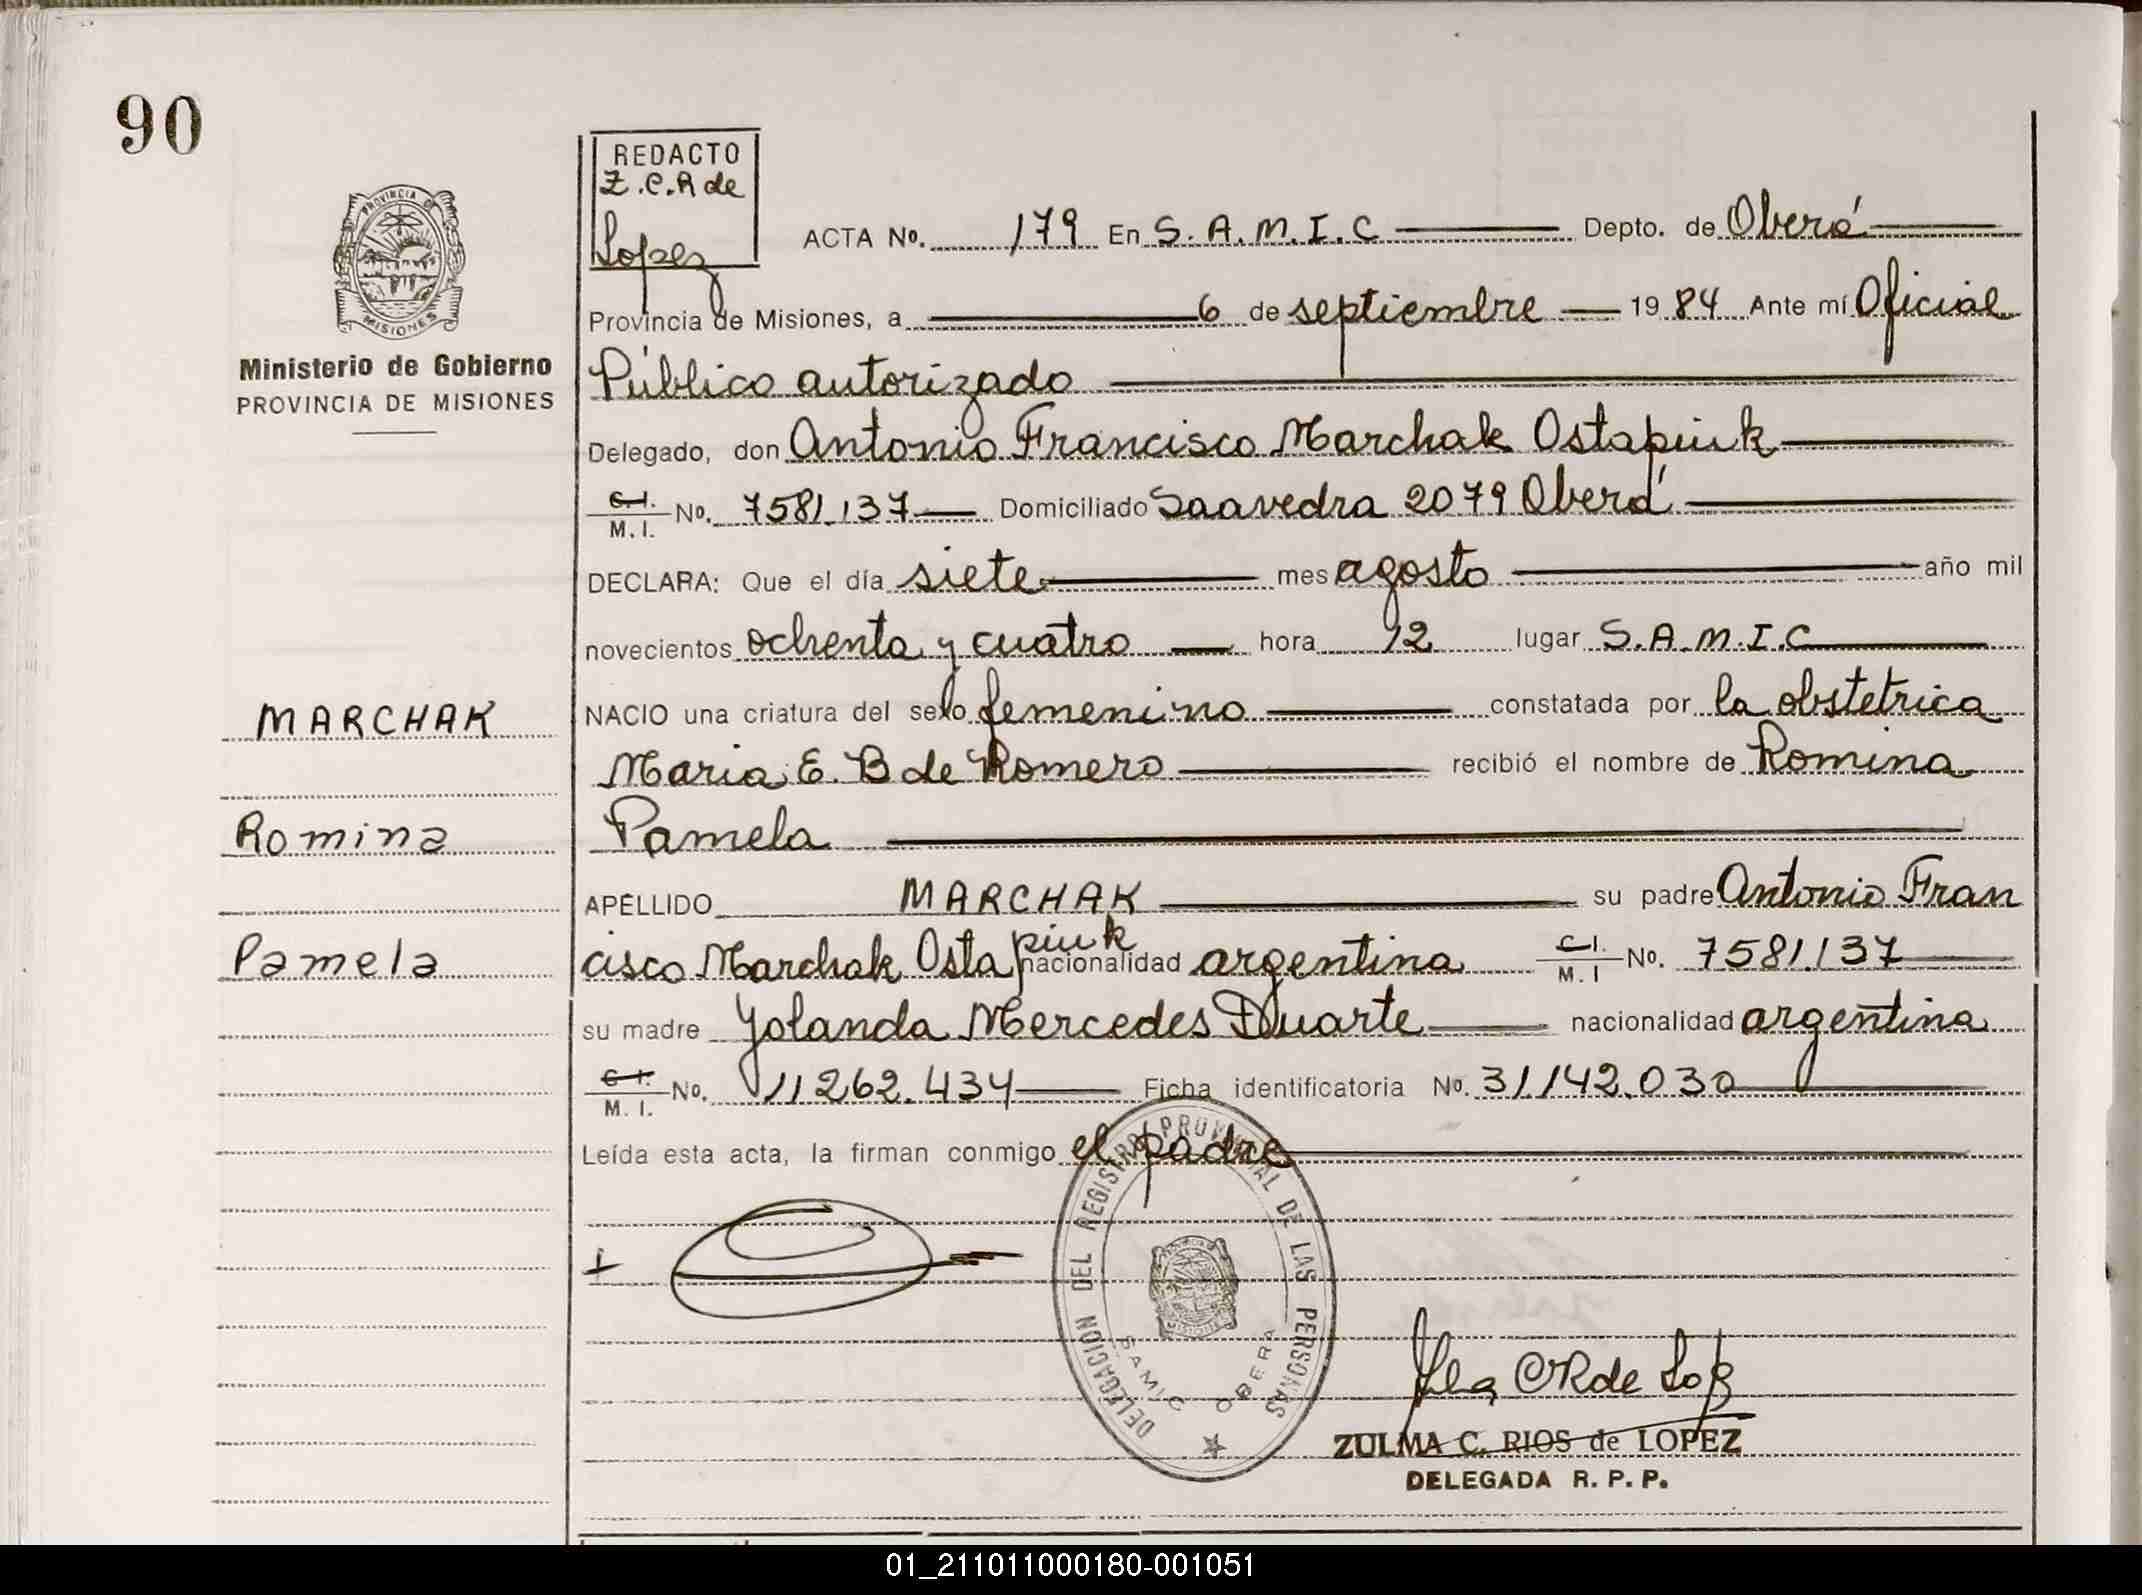 90
REDACTO
Z.C.R de
Lopez
PROVINCIA DE
MISIONES
Ministerio de Gobierno
PROVINCIA DE MISIONES
ACTA No. 179 En S.A.M.I.C Depto. de Oberá
Provincia de Misiones, a 6 de septiembre 1984 Ante mí Oficial
Público autorizado
Delegado, don Antonio Francisco Marchak Ostapiuk
C.I. M.I. No. 7581.137 Domiciliado Saavedra 2079 Oberá
DECLARA: Que el día siete mes agosto año mil
novecientos ochenta y cuatro hora 12 lugar S.A.M.I.C
MARCHAK
NACIO una criatura del sexo femenino constatada por la obstetrica
Maria E. B de Romero recibió el nombre de Romina
Romina
Pamela
APELLIDO MARCHAK su padre Antonio Fran
Pamela
cisco Marchak Ostapiuk nacionalidad argentina C.I. M.I No. 7581.137
su madre Yolanda Mercedes Duarte nacionalidad argentina
C.I. M.I. No. 11262.434 Ficha identificatoria No. 31.142.030
Leída esta acta, la firman conmigo el padre
DELEGACION DEL REGISTRO PROVINCIAL DE LAS PERSONAS
SAMIC OBERA
ZULMA C. RIOS de LOPEZ
DELEGADA R. P. P.
01_211011000180-001051